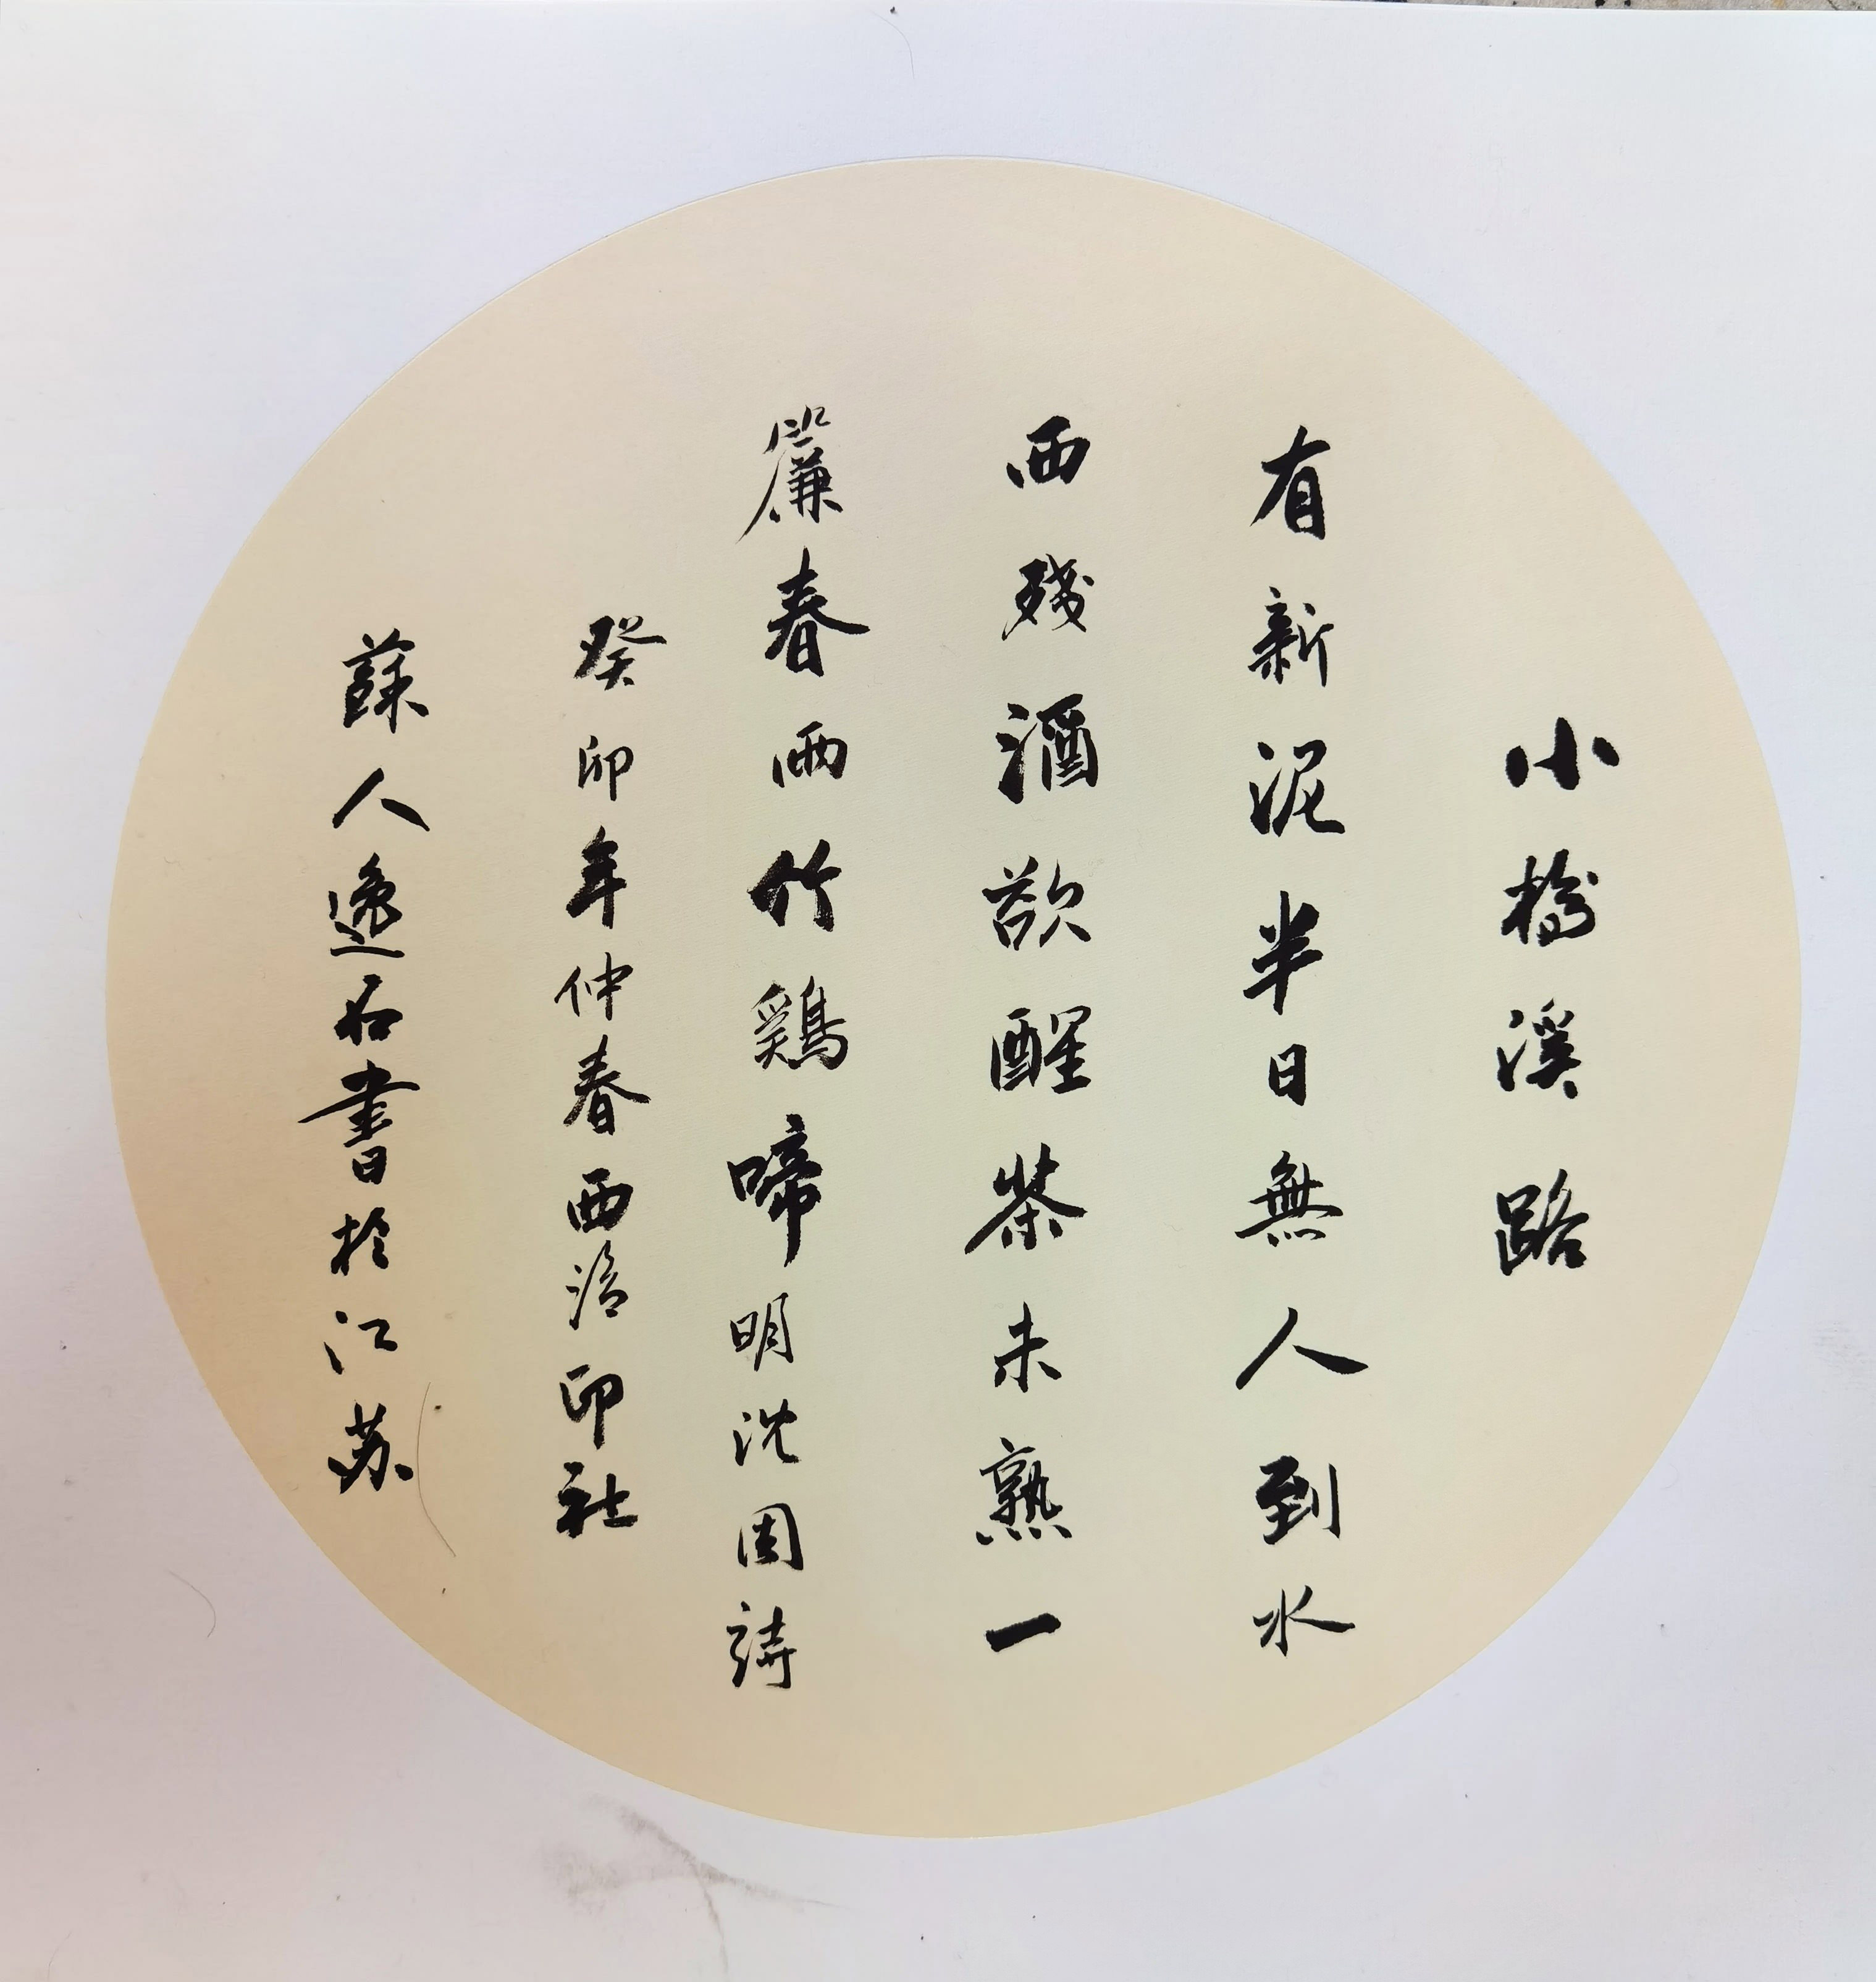 小橋溪路
有新泥半日無人到水
西殘酒欲醒茶未熟一
簾春雨竹鷄啼明沈周詩
癸卯年仲春西泠印社
蘇人逸石書於江苏